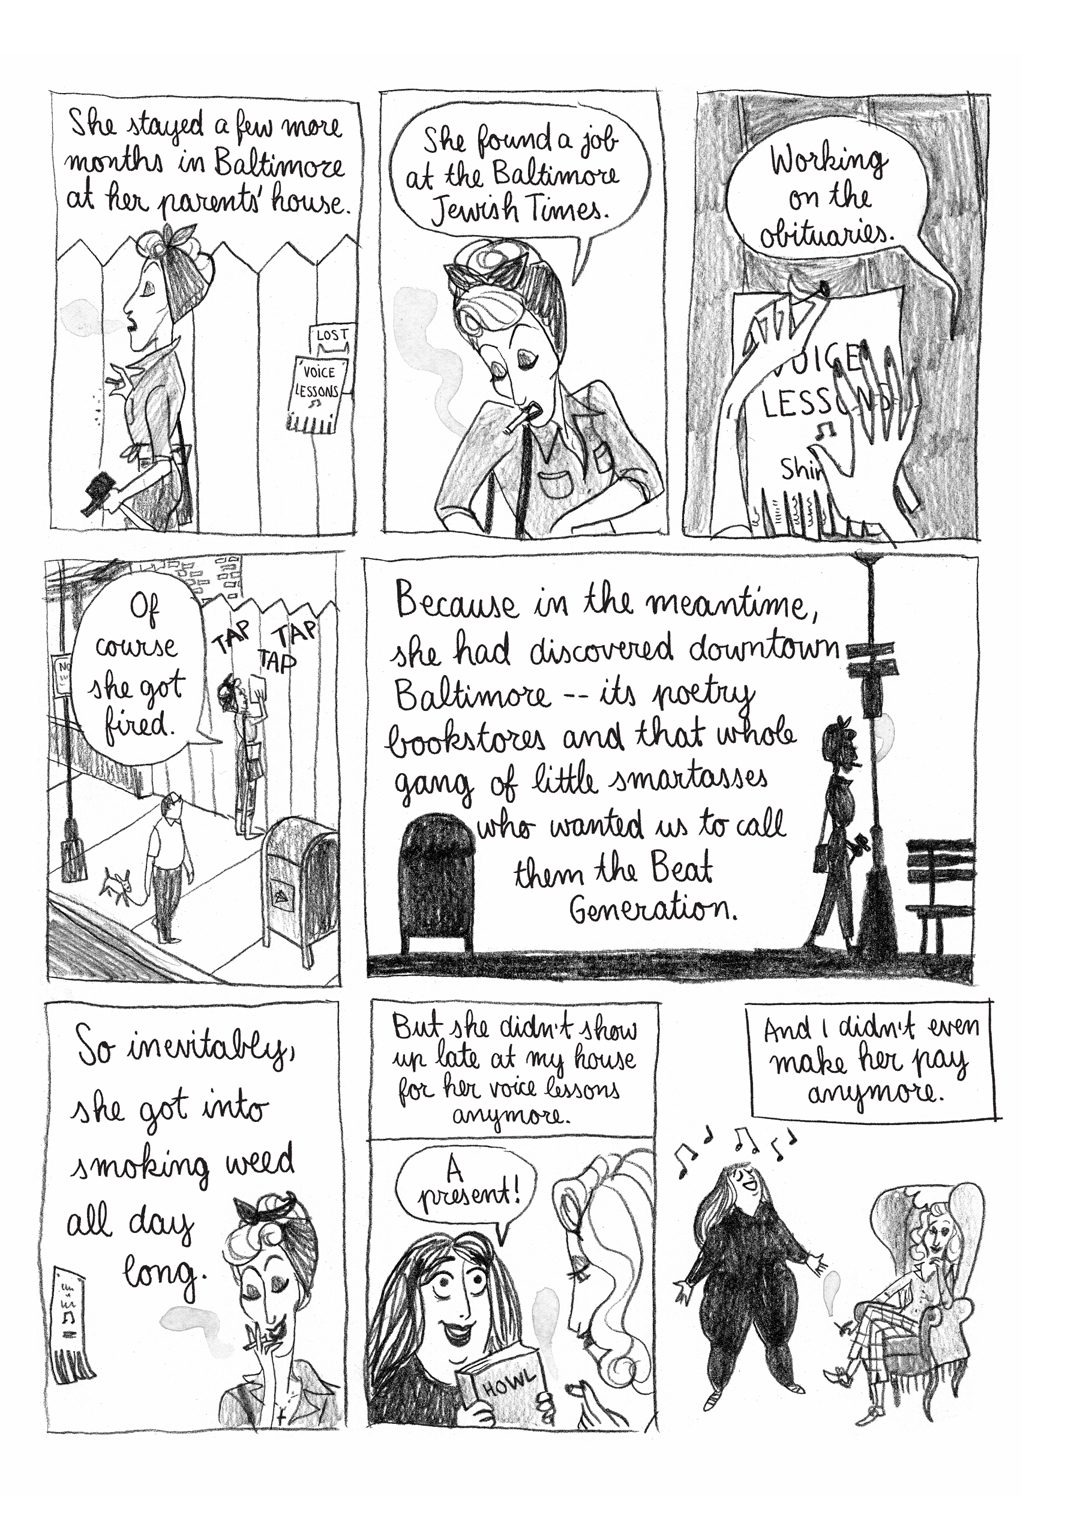 She stayed a few more
months in Baltimore
at her parents' house.
LOST
VOICE
LESSONS
She found a job
at the Baltimore
Jewish Times.
Working
on the
obituaries.
VOICE
LESSONS
Of
course
she got
fired.
TAP
TAP
TAP
NO
Because in the meantime,
she had discovered downtown
Baltimore -- its poetry
bookstores and that whole
gang of little smartasses
who wanted us to call
them the Beat
Generation.
So inevitably,
she got into
smoking weed
all day
long.
But she didn't show
up late at my house
for her voice lessons
anymore.
A
present!
HOWL
And I didn't even
make her pay
anymore.